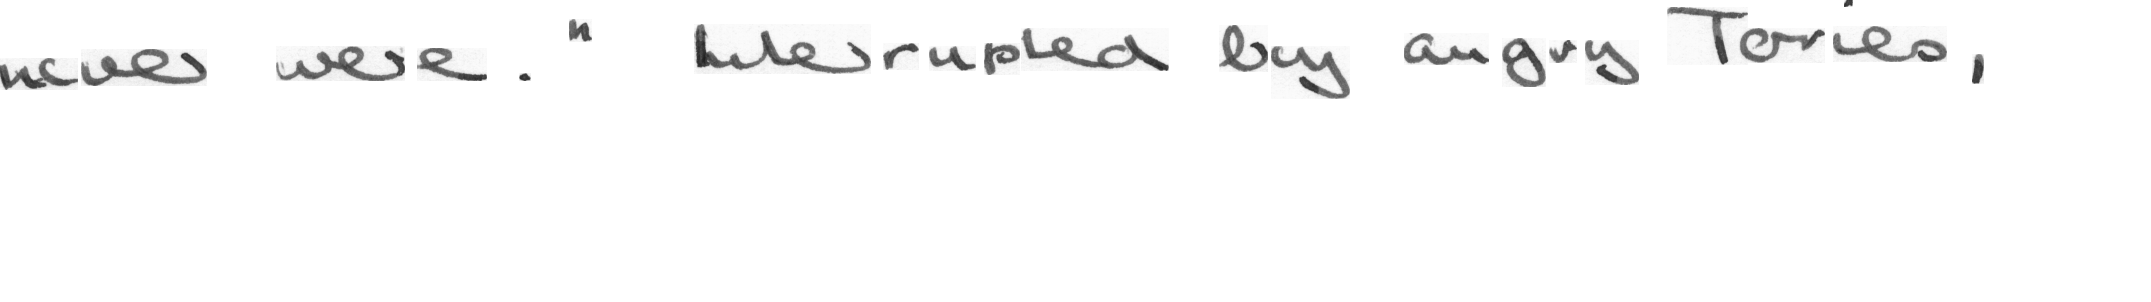 never were." Interrupted by angry Tories,